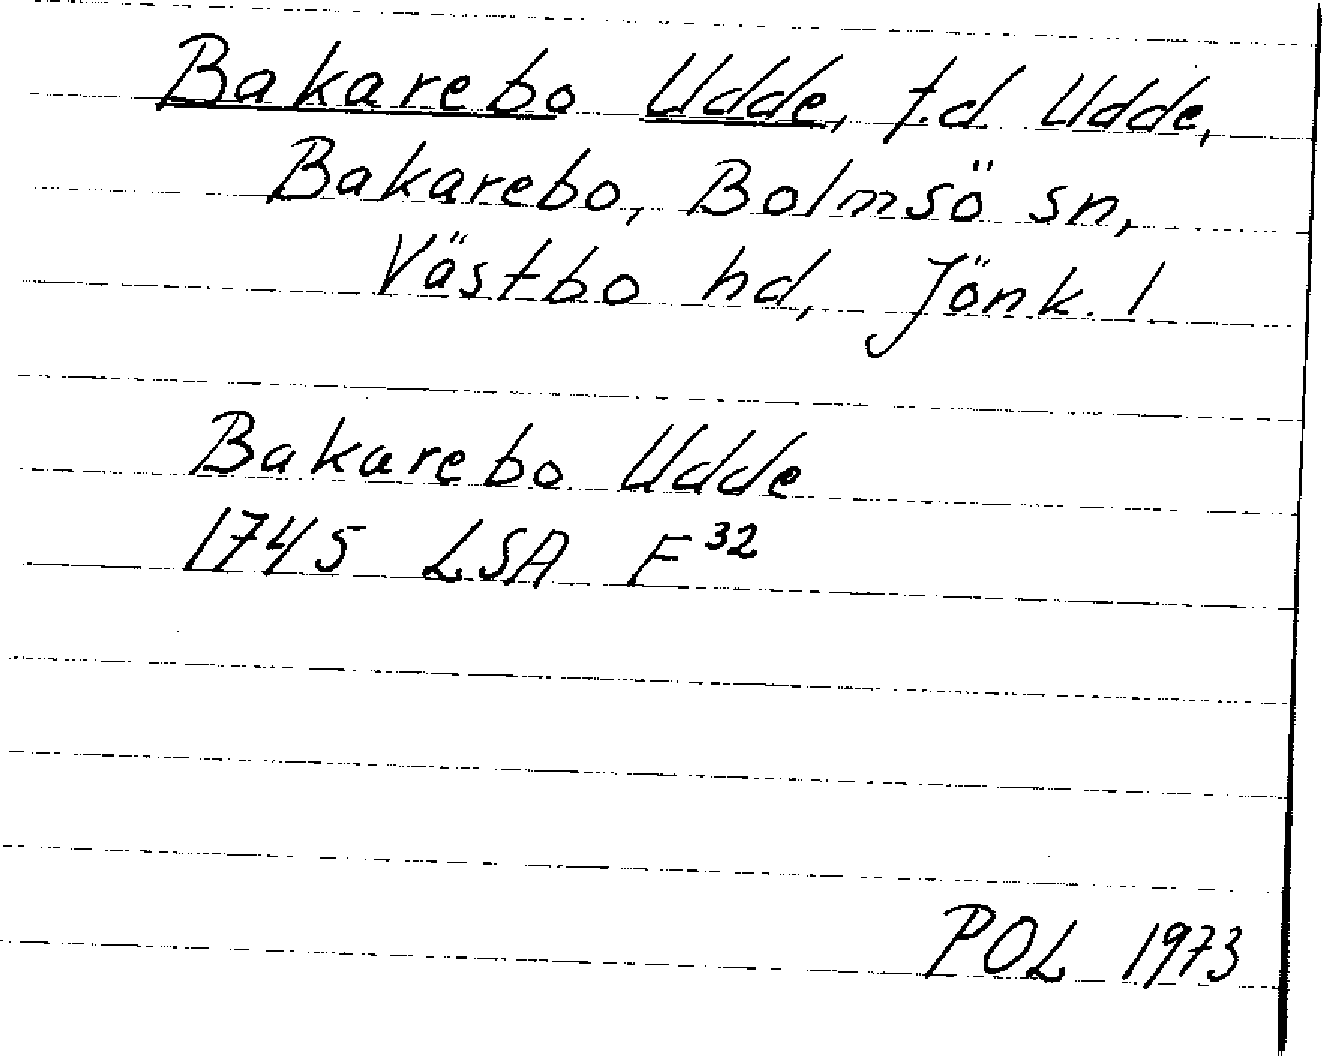 Bakarebo Udde, t.d. Udde,
Bakarebo, Bolmsö sn,
Västbo hd, Jönk. l
Bakarebo Udde
1745 LSA F 32
POL 1973